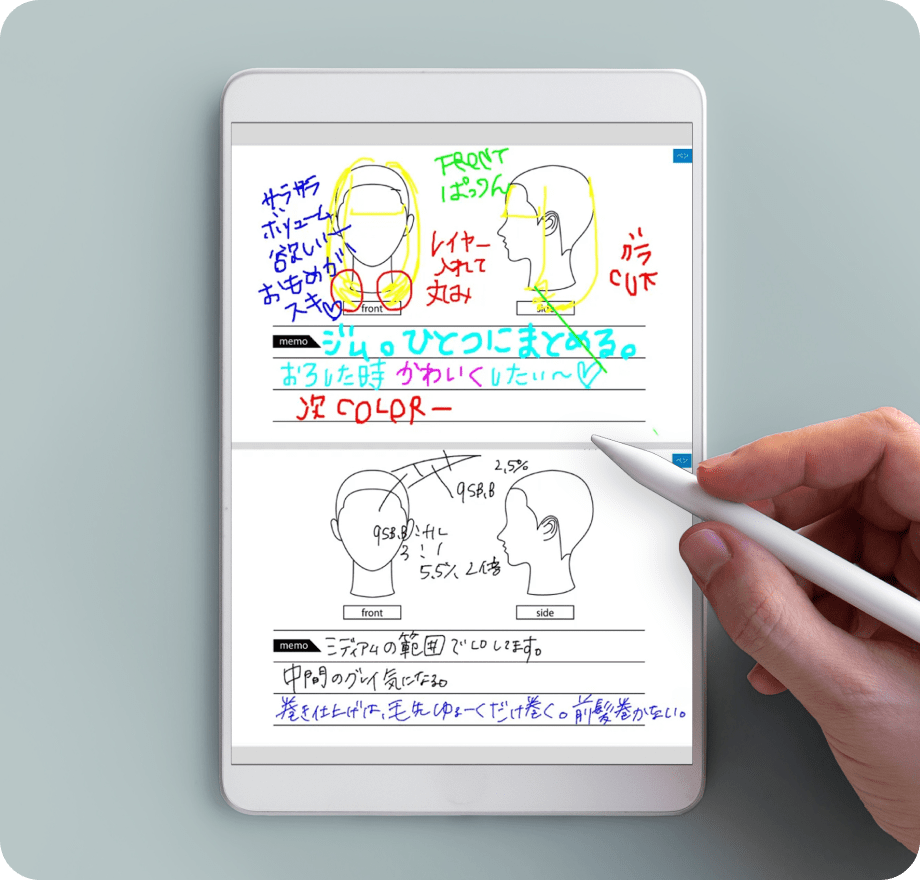 ペン
サラサラ
ボリューム
欲しいー
おもめが
スキ♡
FRONT
ぱっつん
レイヤー
入れて
丸み
ガラ
CUT
front
side
memo ジム。ひとつにまとめる。
おろした時 かわいくしたい〜♡
次 COLORー
ペン
2.5%
95B.B
95B.B:ナル
3:1
5.5%. 2倍
front
side
memo ミディアムの範囲でLOしてます。
中間のグレイ気になる。
巻き仕上げは、毛先ゆるーくだけ巻く。前髪巻かない。